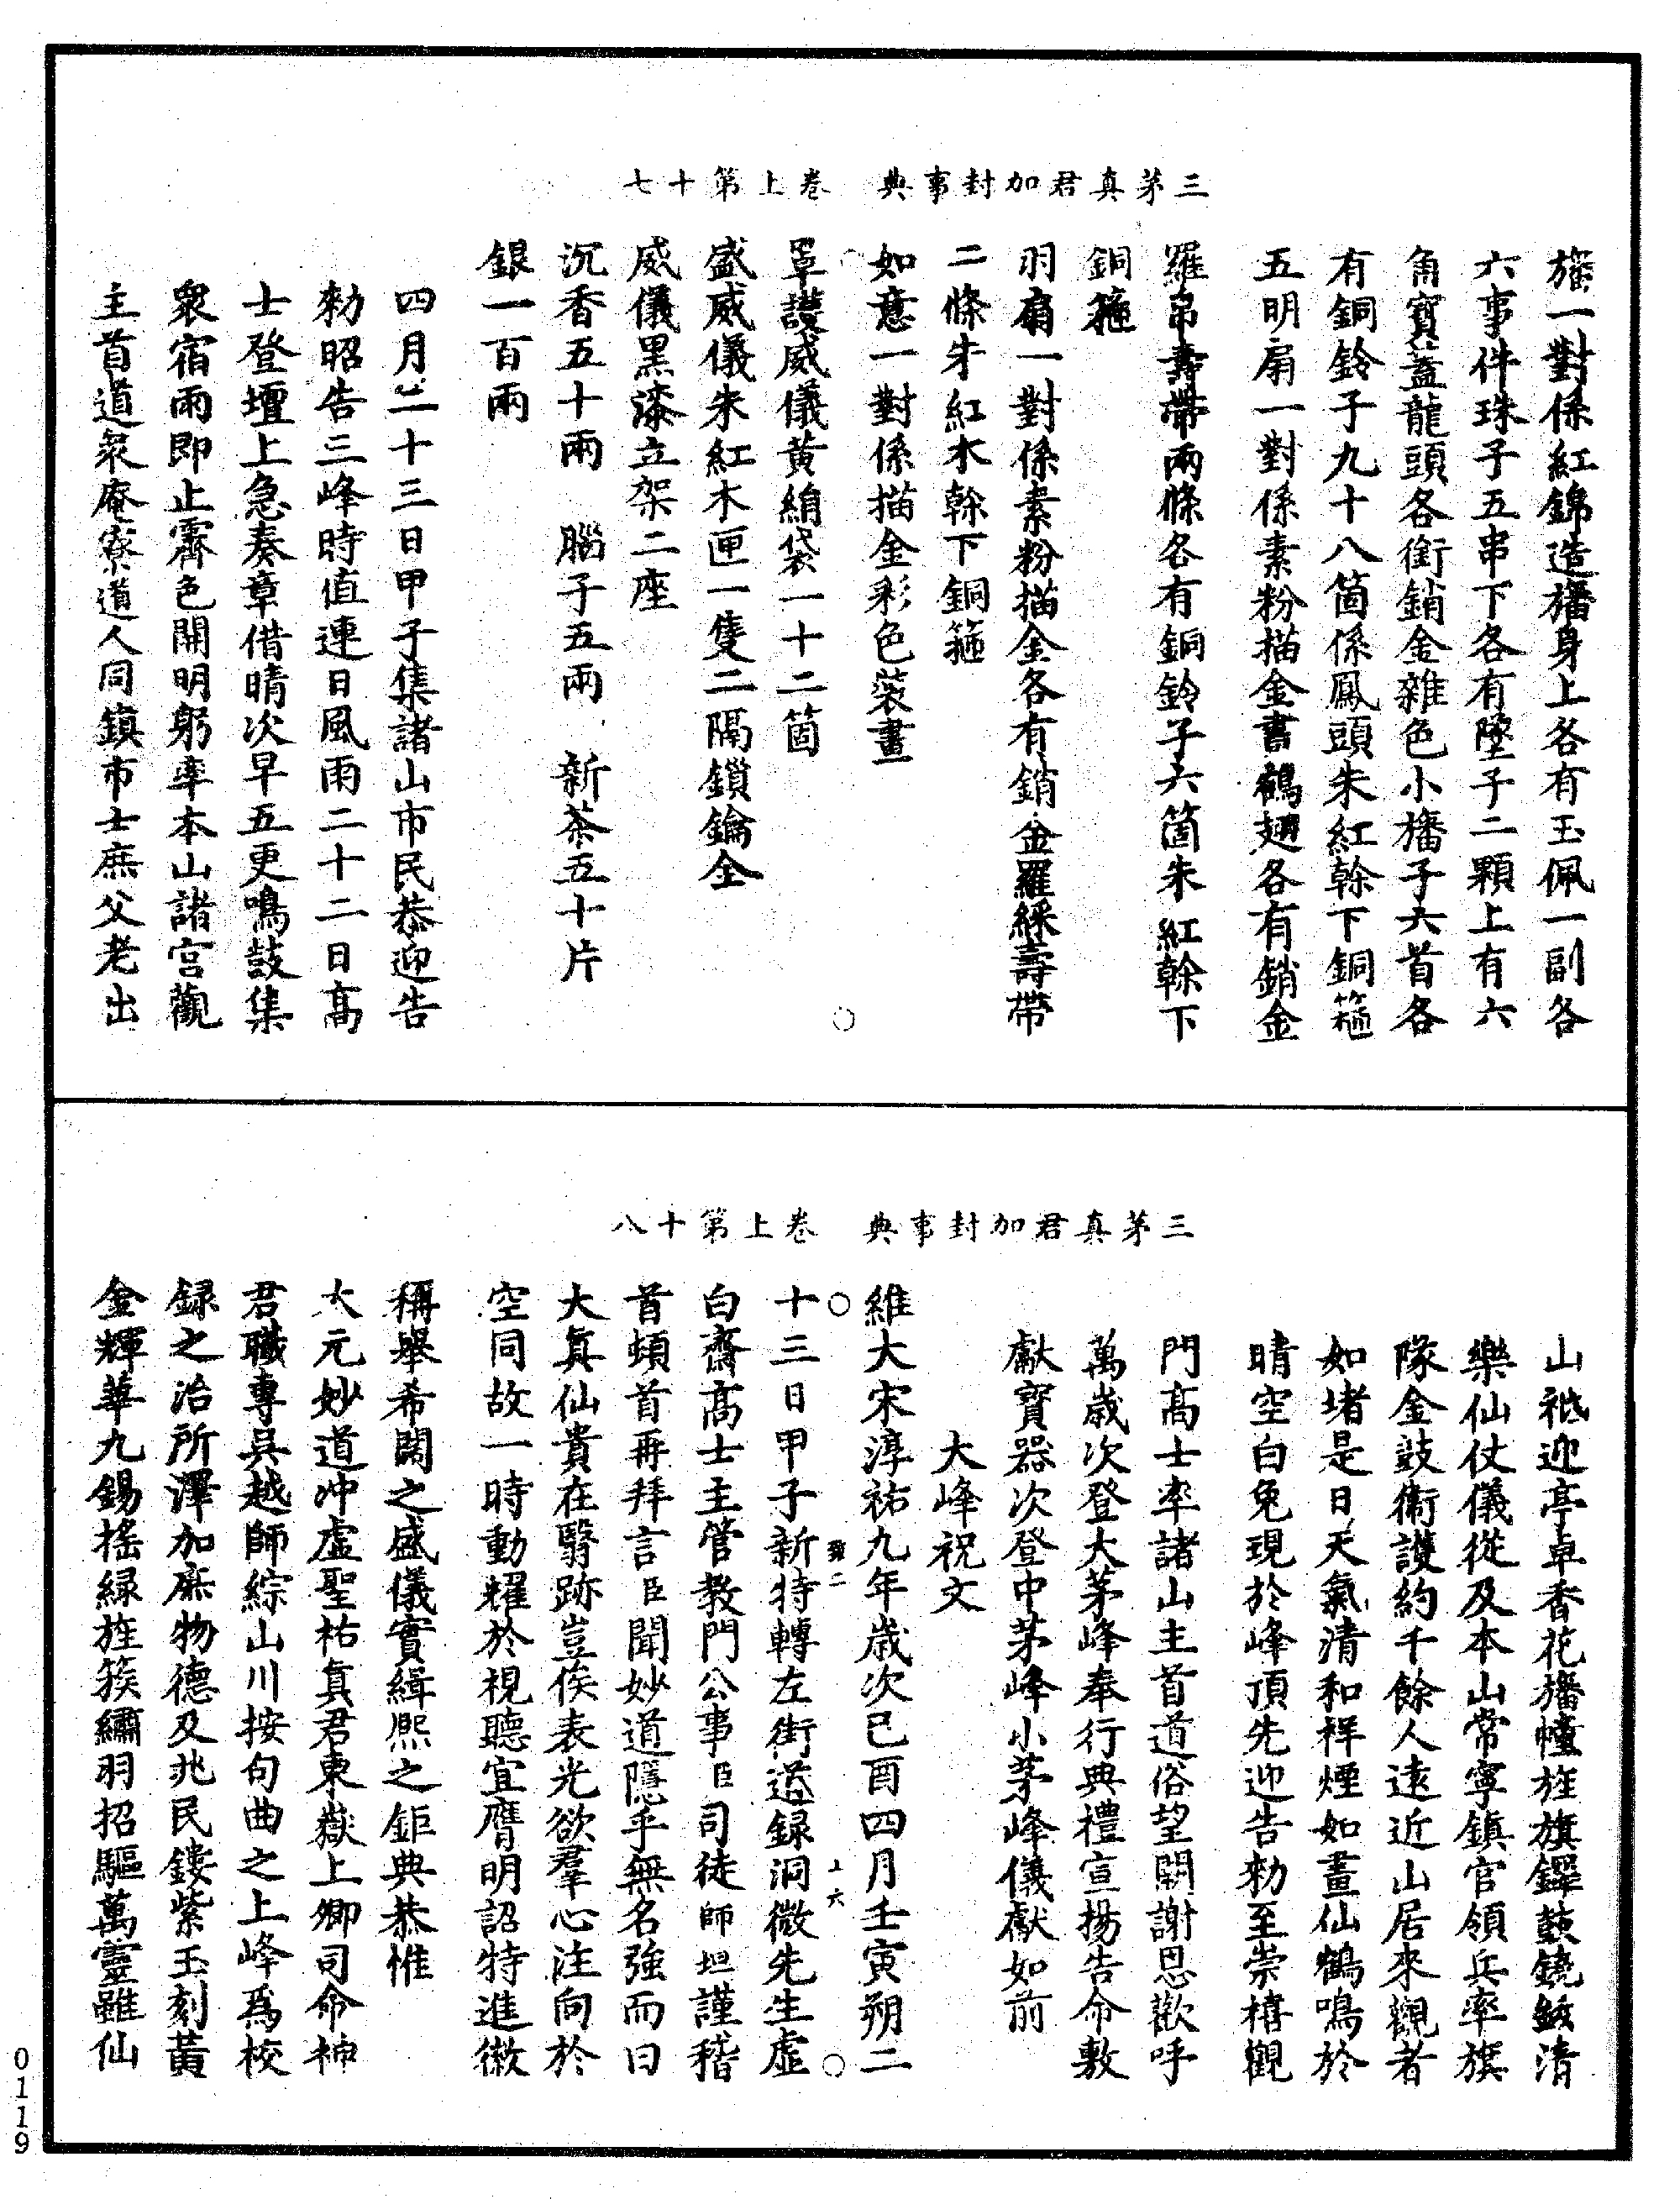 三茅真君加封事典　卷上第十七
旛一對係紅錦造旛身上各有玉佩一副各
六事件珠子五串下各有墜子二顆上有六
角寶蓋龍頭各銜銷金雜色小旛子六首各
有銅鈴子九十八箇係鳳頭朱紅榦下銅箍
五明扇一對係素粉描金書鶴翅各有銷金
羅帛壽帶兩條各有銅鈴子六箇朱紅榦下
銅箍
羽扇一對係素粉描金各有銷金羅綵壽帶
二條朱紅木榦下銅箍
如意一對係描金彩色裝畫
罩護威儀黄絹袋一十二箇
盛威儀朱紅木匣一隻二隔鎖鑰全
威儀黑漆立架二座
沉香五十兩　腦子五兩　新茶五十片
銀一百兩
四月二十三日甲子集諸山市民恭迎告
勑昭告三峰時值連日風雨二十二日高
士登壇上急奏章借晴次早五更鳴鼓集
衆宿雨即止霽色開明躬率本山諸宫觀
主首道衆庵寮道人同鎮市士庶父老出
三茅真君加封事典　卷上第十八
山祗迎亭卓香花旛幢旌旗鐸鼓鐃鈸清
樂仙仗儀從及本山常寧鎮官領兵率旗
隊金鼓衛護約千餘人遠近山居來觀者
如堵是日天氣清和祥煙如畫仙鶴鳴於
晴空白兔現於峰頂先迎告勑至崇禧觀
門高士率諸山主首道俗望闕謝恩歡呼
萬歲次登大茅峰奉行典禮宣揚告命敷
獻寶器次登中茅峰小茅峰儀獻如前
大峰祝文
維大宋淳祐九年歲次己酉四月壬寅朔二
雞二　上六
十三日甲子新特轉左街道録洞微先生虚
白齋高士主管教門公事臣司徒師坦謹稽
首頓首再拜言臣聞妙道隱乎無名強而曰
大真仙貴在翳跡豈俟表光欲羣心注向於
空同故一時動耀於視聽宜膺明詔特進徽
稱舉希闊之盛儀實緝熙之鉅典恭惟
大元妙道冲虚聖祐真君東嶽上卿司命神
君職專吳越師綜山川按句曲之上峰爲校
録之治所澤加庶物德及兆民鏤紫玉刻黃
金輝華九錫摇緑旌簇繡羽招驅萬靈雖仙
0119